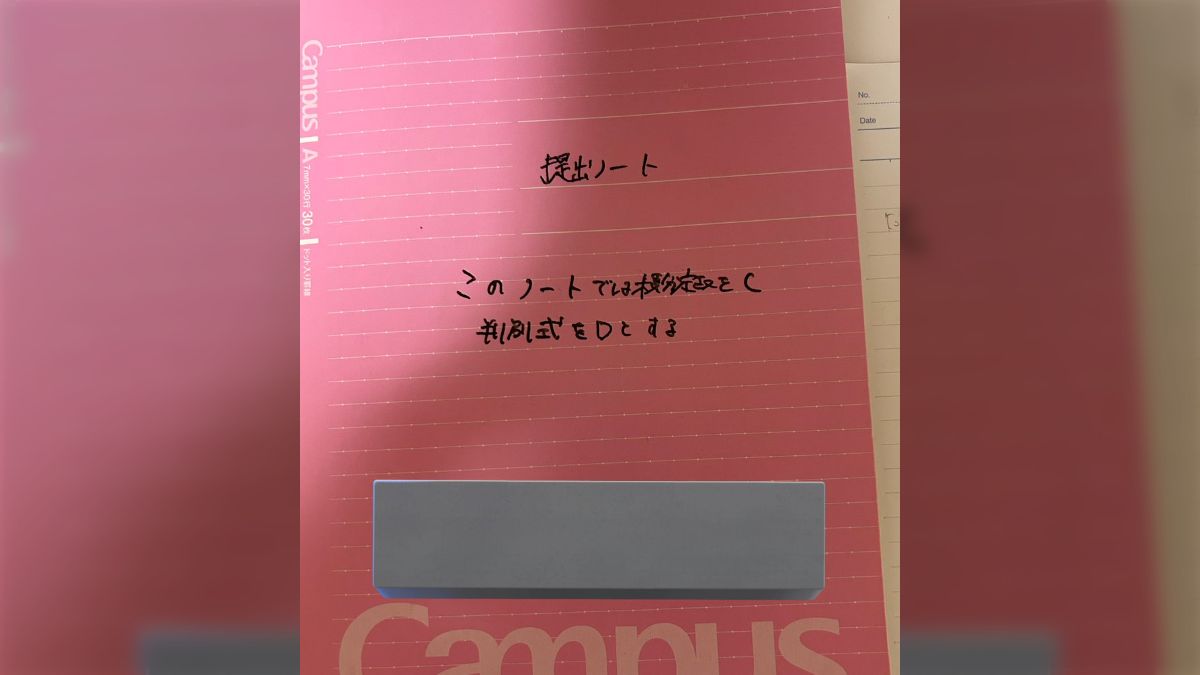 Campus A 7mm×30行 30枚 ドット入り罫線
No.
Date
提出ノート
このノートでは積分定数をC
判別式をDとする
Campus